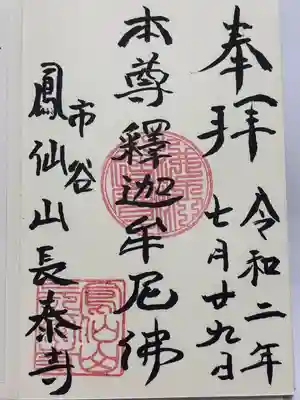 奉拝
令和二年
七月廿九日
本尊釋迦牟尼佛
市谷
鳳仙山長泰寺